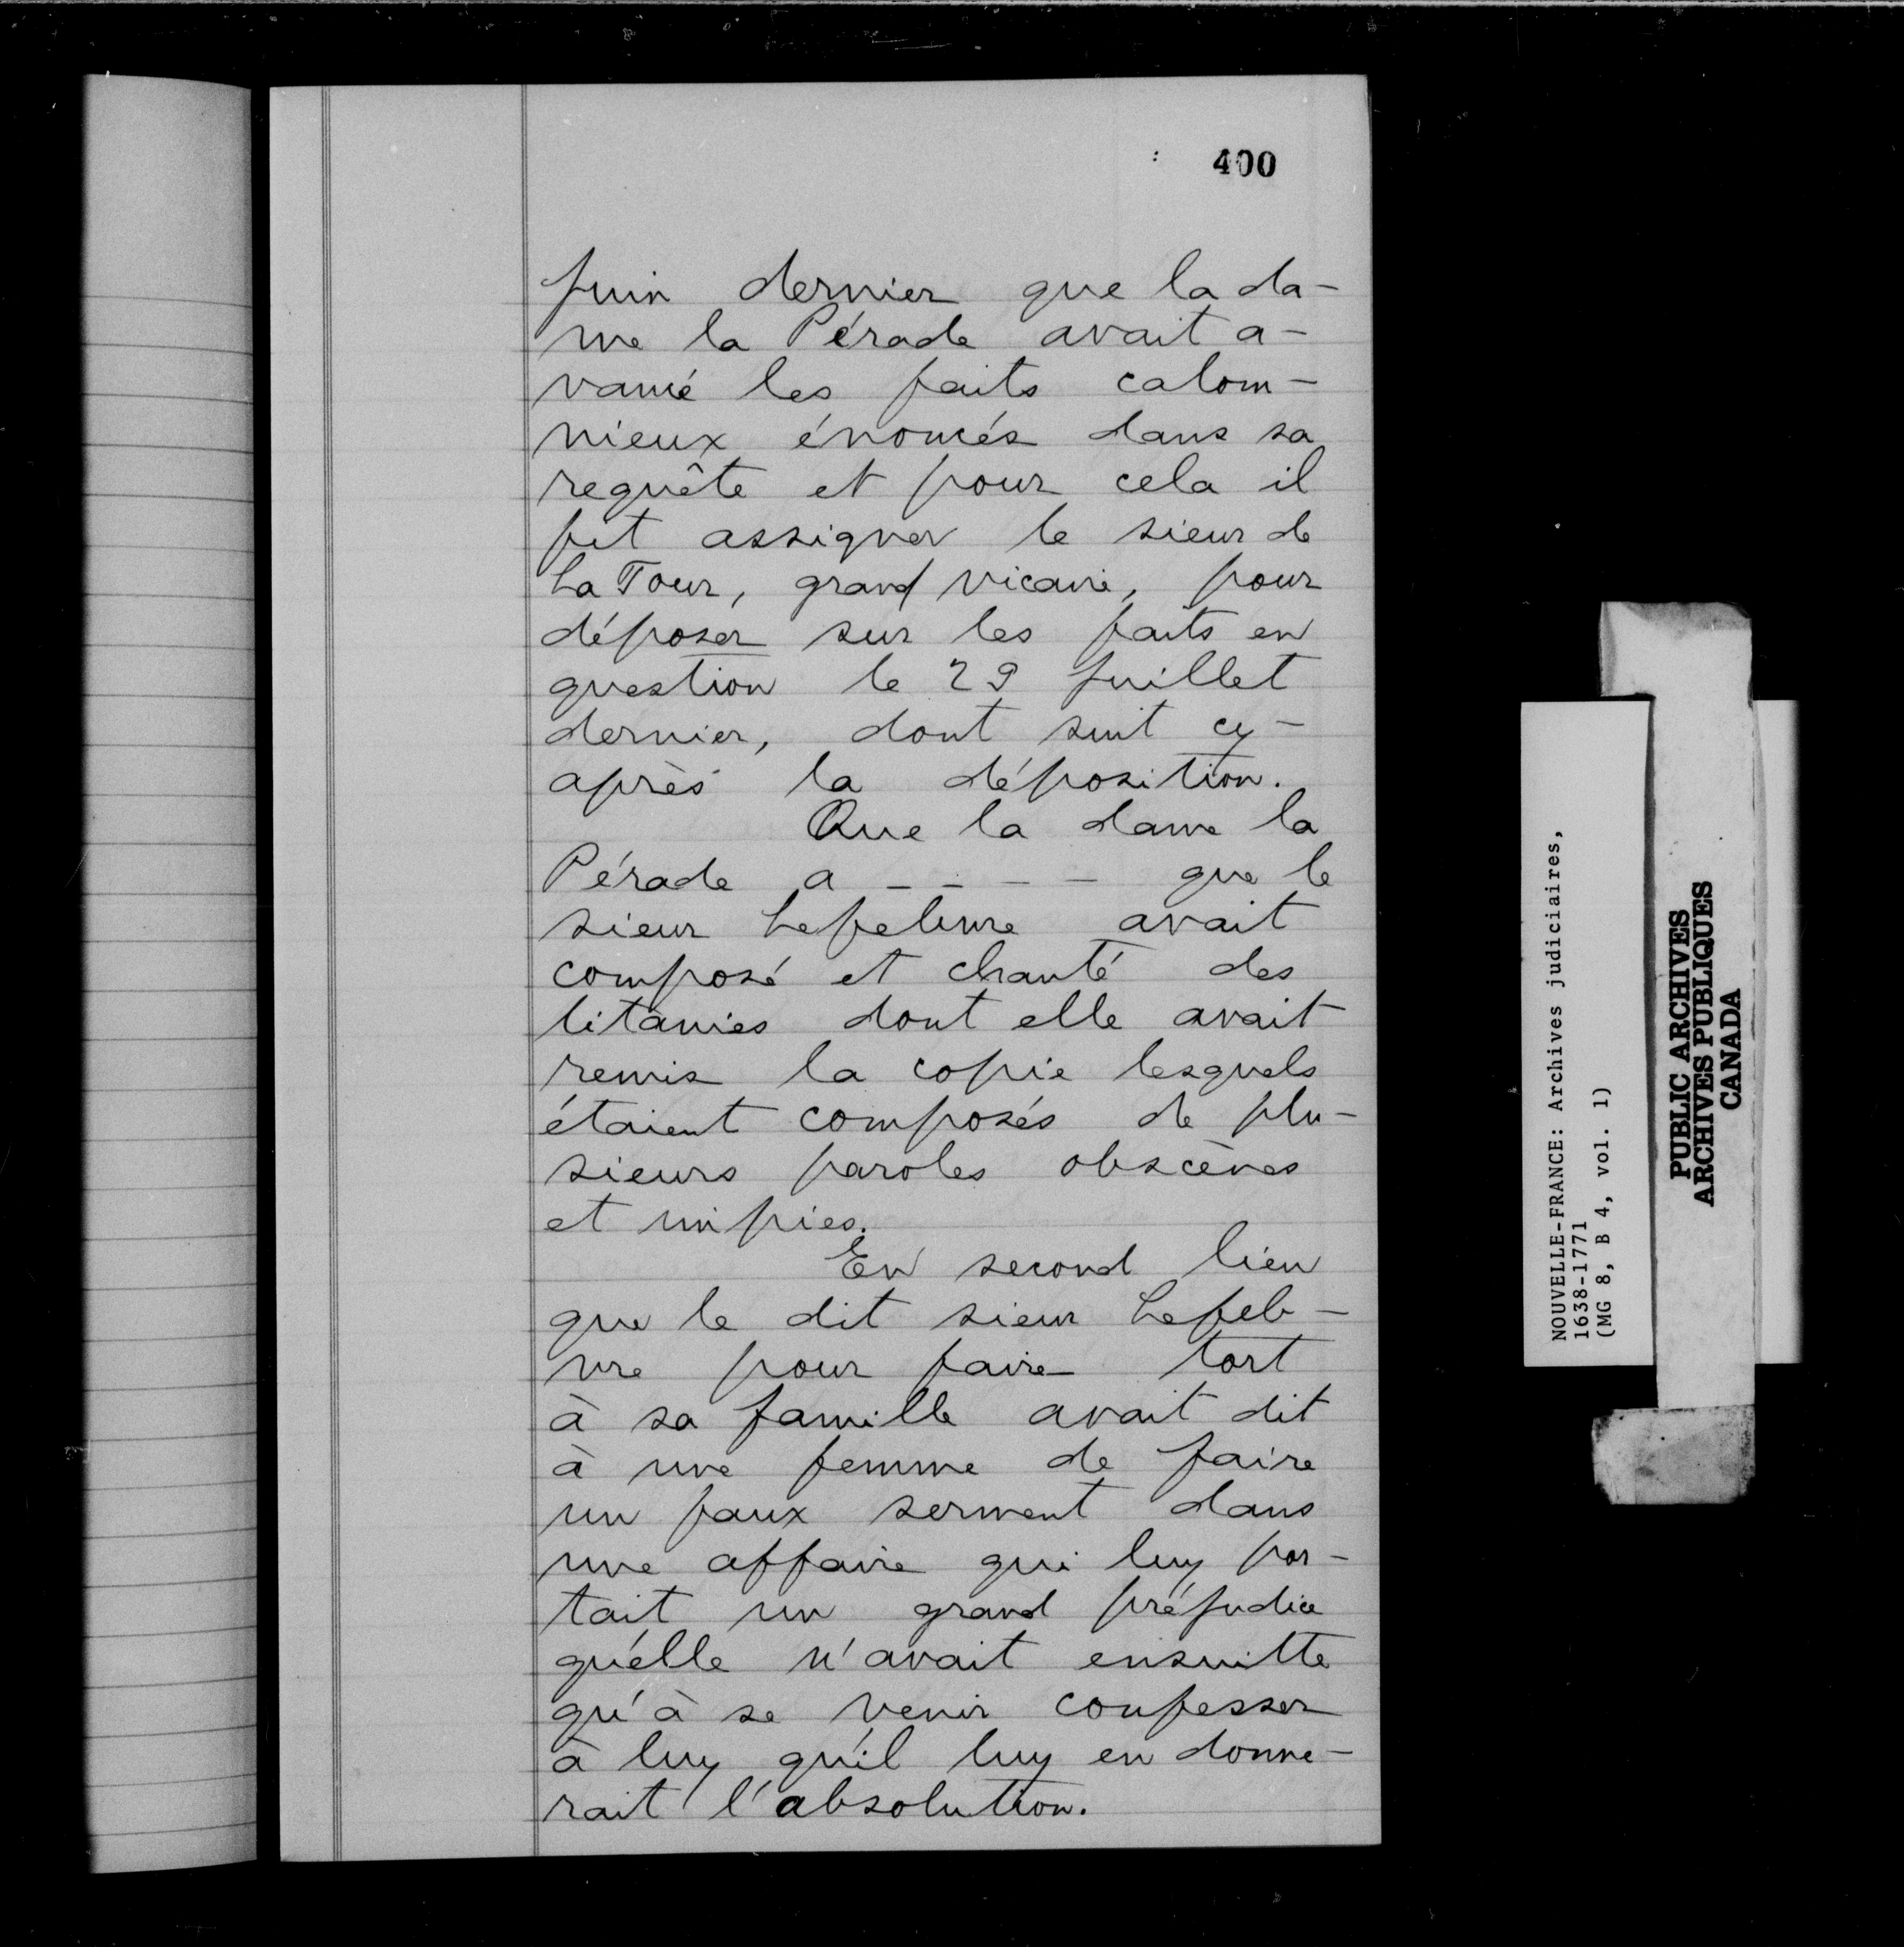 400
juin dernier que la da-
me la Pérade avait a-
vancé les faits calom-
nieux énoncés dans sa
requête et pour cela il
fit assigner le sieur de
La Tour, grand vicaire, pour
déposer sur les faits en
question le 29 juillet
dernier, dont suit cy-
après la déposition.
Que la dame la
Pérade a - - - - que le
sieur Lefebvre avait
composé et chanté des
litanies dont elle avait
remis la copie lesquels
étaient composés de plu-
sieurs paroles obscènes
et impies.
En second lieu
que le dit sieur Lefeb-
vre pour faire tort
à sa famille avait dit
à une femme de faire
un faux serment dans
une affaire qui luy por-
tait un grand préjudice
qu'elle n'avait ensuitte
qu'à se venir confesser
à luy qu'il luy en donne-
rait l'absolution.
NOUVELLE-FRANCE: Archives judiciaires,
1638-1771
(MG 8, B 4, vol. 1)
PUBLIC ARCHIVES
ARCHIVES PUBLIQUES
CANADA